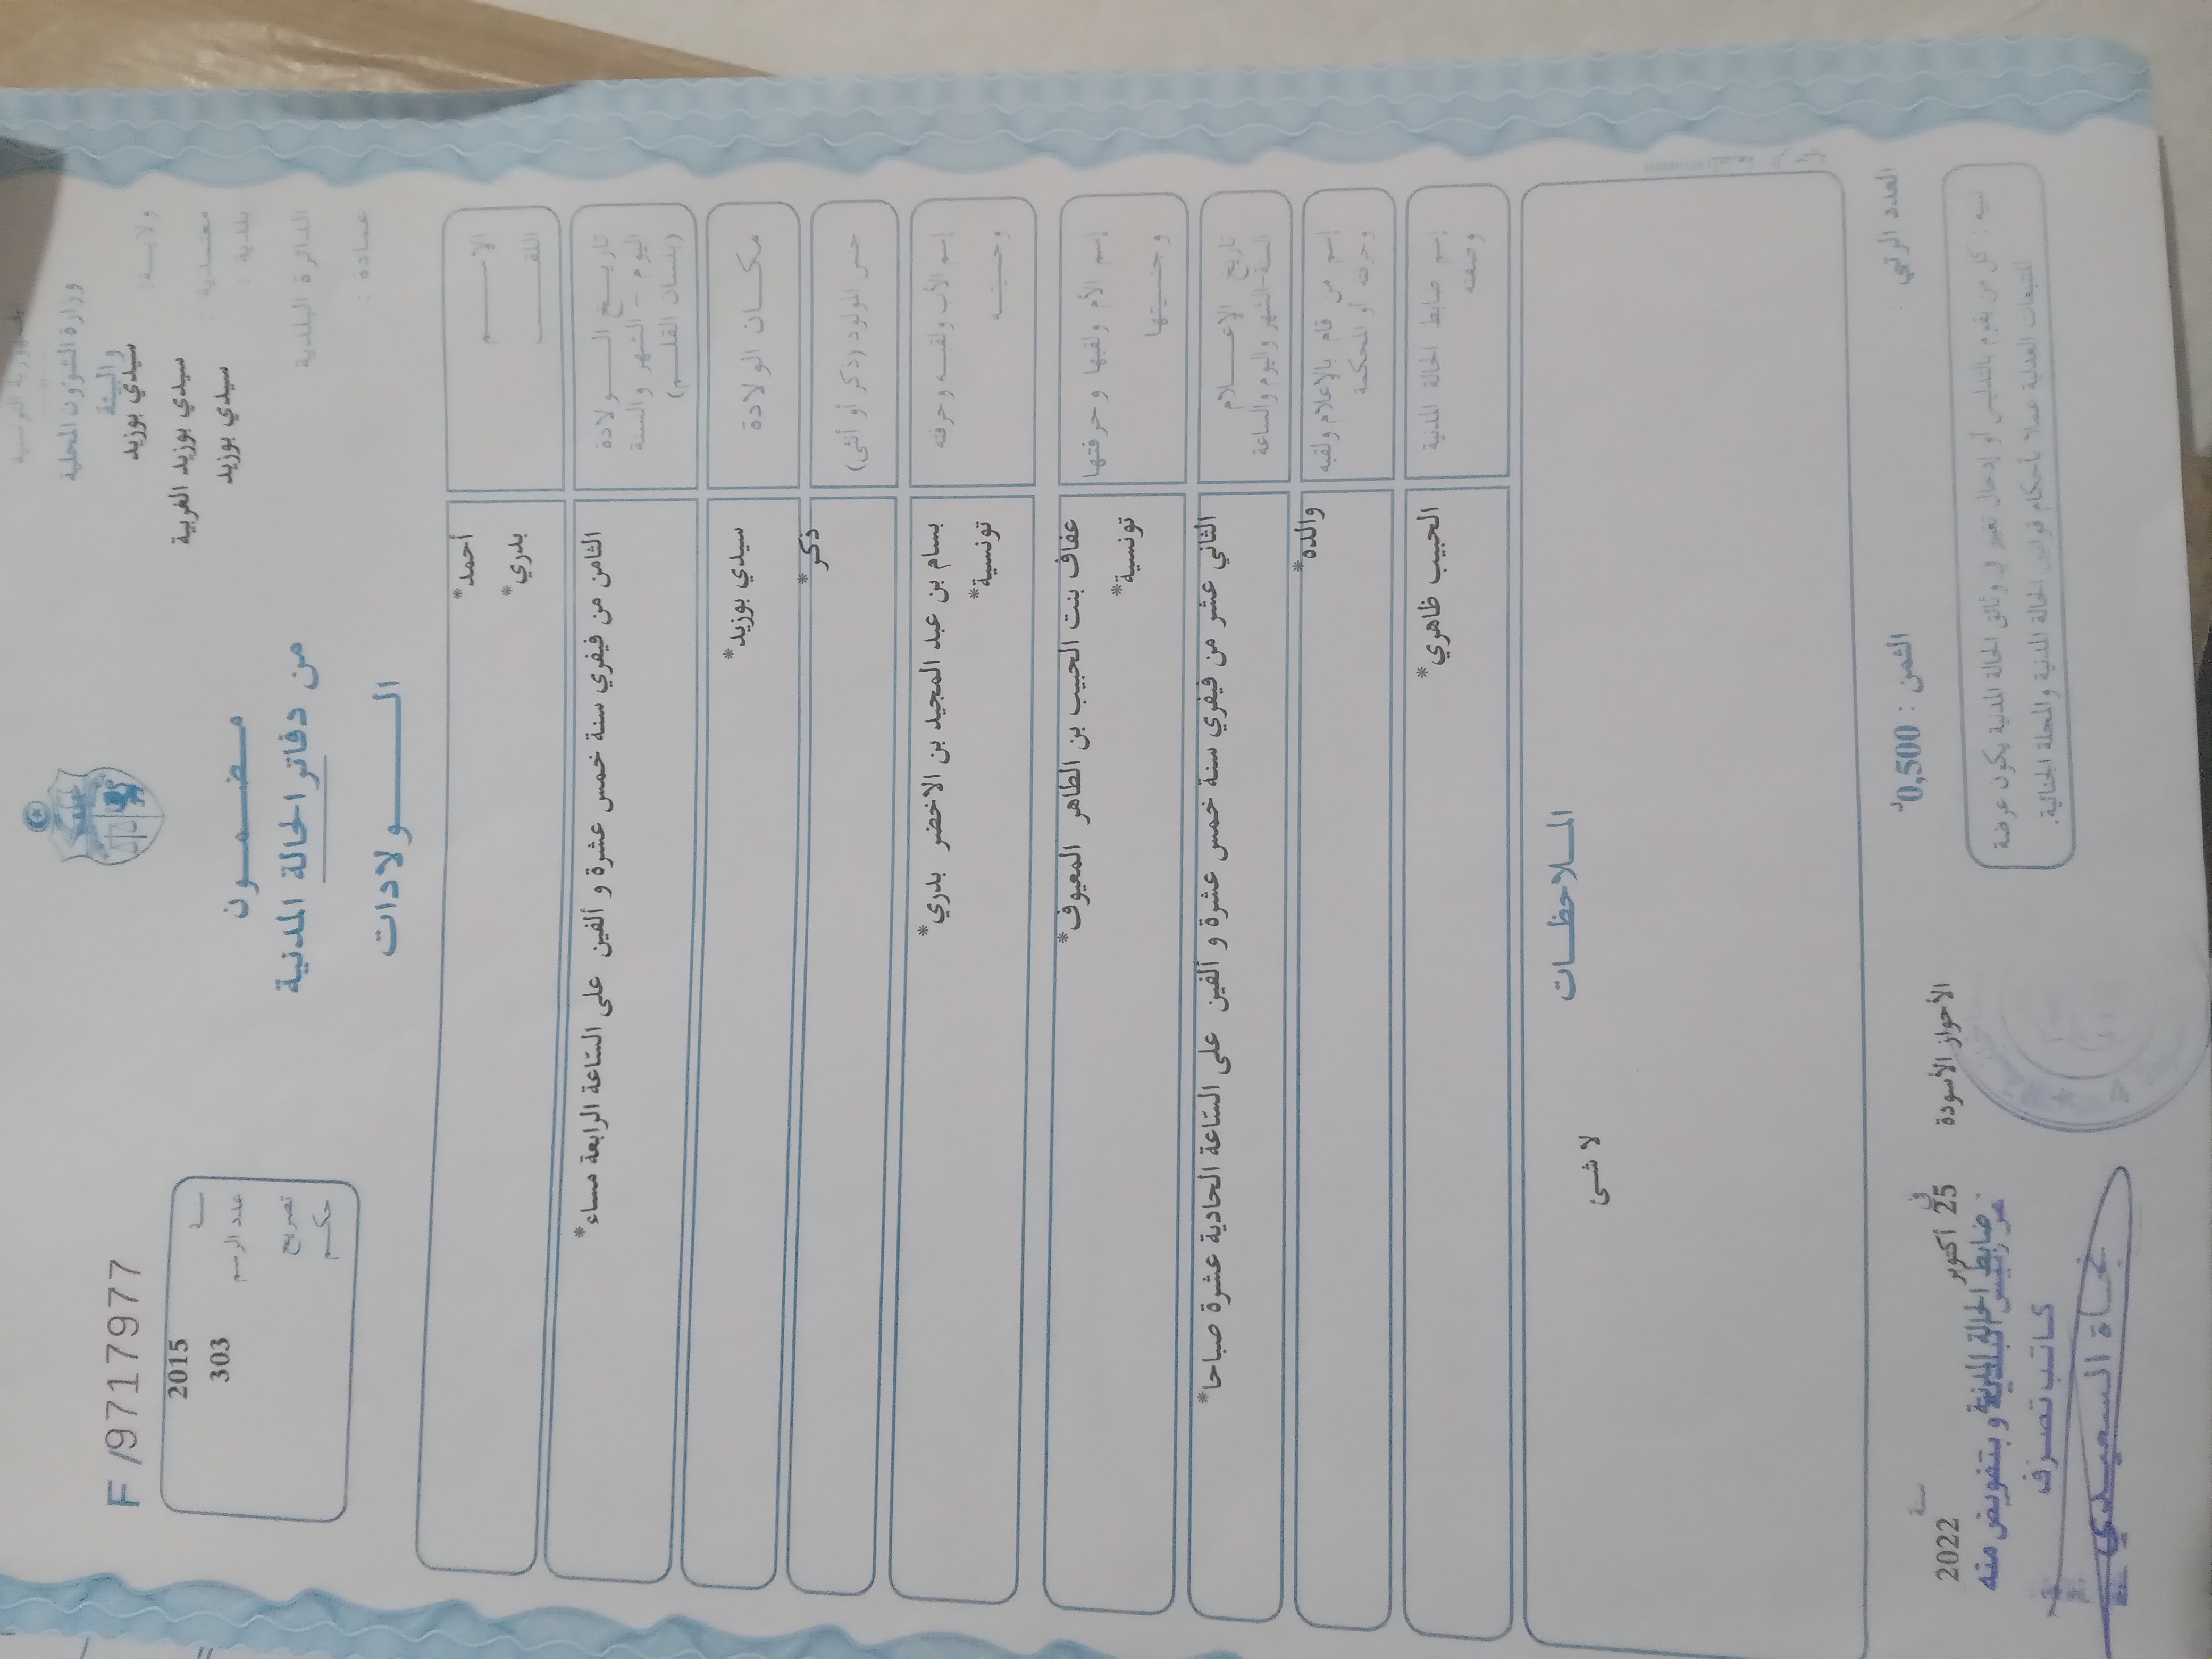 الجمهورية التونسية
وزارة الشؤون المحلية
والبيئة
ولاية: سيدي بوزيد
معتمدية: سيدي بوزيد الغربية
بلدية: سيدي بوزيد
الدائرة البلدية
عمادة:
مضمون
من دفاتر الحالة المدنية
الولادات
F /9717977
سنة 2015
عدد الرسم 303
تصريح
حكم
الاسم أحمد*
اللقب بدري*
تاريخ الولادة الثامن من فيفري سنة خمس عشرة و ألفين على الساعة الرابعة مساء*
اليوم - الشهر والسنة
(بلسان القلم)
مكان الولادة سيدي بوزيد*
جنس المولود (ذكر أو أنثى) ذكر*
إسم الأب ولقبه وحرفته بسام بن عبد المجيد بن الاخضر بدري*
وجنسيته تونسية*
إسم الأم ولقبها وحرفتها عفاف بنت الحبيب بن الطاهر المعيوف*
وجنسيتها تونسية*
تاريخ الإعلام الثاني عشر من فيفري سنة خمس عشرة و ألفين على الساعة الحادية عشرة صباحا*
السنة-الشهر واليوم والساعة
إسم من قام بالإعلام ولقبه والده*
وحرفته أو المحكمة
إسم ضابط الحالة المدنية الحبيب ظاهري*
وصفته
الملاحظات
لا شئ
العدد الرتبي :
الثمن : 0,500د
تنبيه : كل من يقوم بالتدليس أو إدخال تغيير في وثائق الحالة المدنية يكون عرضة
للتتبعات العدلية عملا بأحكام قوانين الحالة المدنية والمجلة الجنائية.
الأحواز الأسودة في 25 أكتوبر سنة 2022
ضابط الحالة المدنية
عن رئيس البلدية و بتفويض منه
كاتب تصرف
نجاة السعيدي